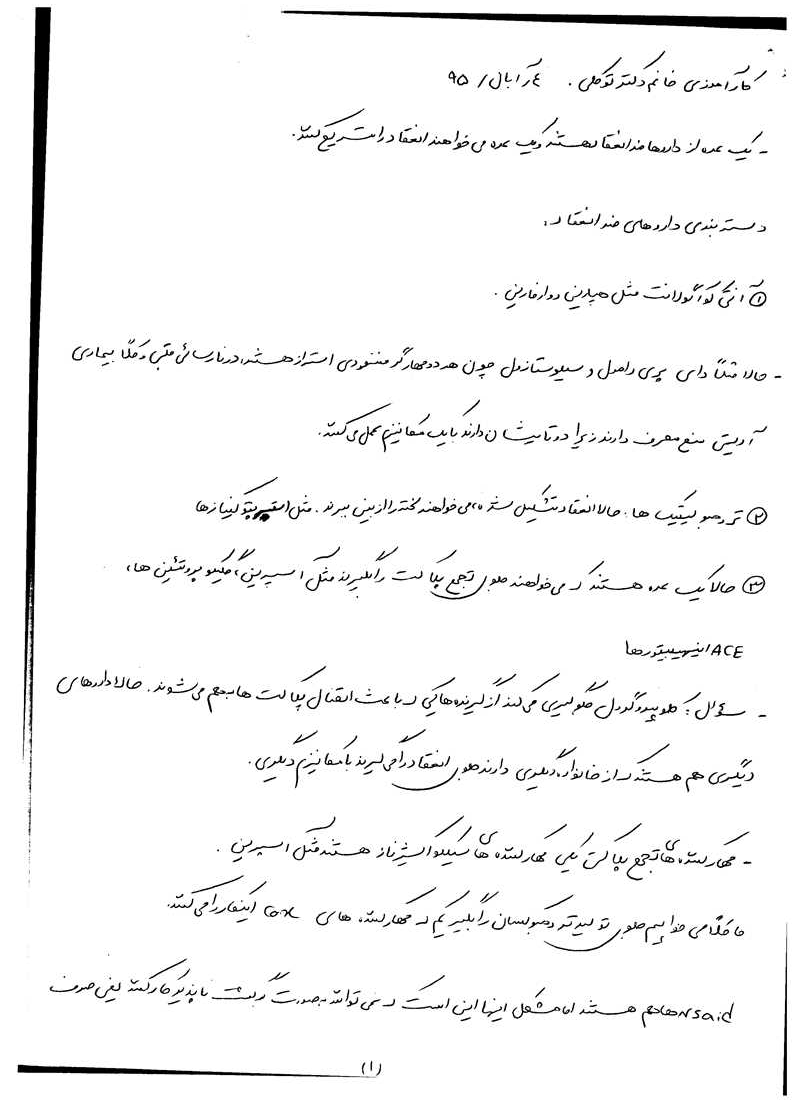 کارآموزی خانم دکتر توکلی. ۴ آبان/ ۹۵
- یک عده از داروها ضد انعقاد هستند و یک عده می خواهند انعقاد را تسریع کنند.
دسته بندی داروهای ضد انعقاد:
① آنتی کوآگولانت مثل هپارین و وارفارین.
- حالا مثلاً دی پیریدامول و سیلوستازول چون هر دو مهارگر فسفودی استراز هستند، در نارسائی قلبی و کلاً بیماری
آریتمی منع مصرف دارند زیرا دو تایشان دارند با یک مکانیزم عمل می کنند.
② ترومبولیتیک ها: حالا انعقاد تشکیل شده، می خواهند لخته را از بین ببرند. مثل استرپتوکینازها
③ حالا یک عده هستند که می خواهند جلوی تجمع پلاکت را بگیرند مثل آسپرین، گلیکوپروتئین ها،
ACE اینهیبیتورها
- سؤال: کلوپیدوگرل جلوگیری می کند از گیرنده هایی که باعث اتصال پلاکت ها به هم می شوند. حالا داروهای
دیگری هم هستند که از خانواده دیگری دارند جلوی انعقاد را می گیرند با مکانیزم دیگری.
- مهارکننده های تجمع پلاکتی یکی مهارکننده های سیکلواکسیژناز هستند مثل آسپرین.
ما کلاً می خواهیم جلوی تولید ترومبوکسان را بگیریم که مهارکننده های cox اینکار را می کنند.
nsaid ها هم هستند اما مشکل اینها این است که نمی توانند بصورت برگشت ناپذیر کار کنند یعنی صرف
(۱)